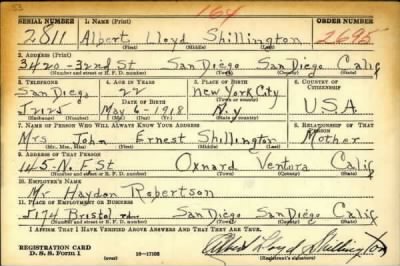 53
164
SERIAL NUMBER 1. NAME (Print) ORDER NUMBER
2811 Albert Lloyd Shillington 2695
(First) (Middle) (Last)
2. ADDRESS (Print)
3420-32nd St San Diego San Diego Calif
(Number and street or R. F. D. number) (Town) (County) (State)
3. TELEPHONE 4. AGE IN YEARS 5. PLACE OF BIRTH 6. COUNTRY OF CITIZENSHIP
San Diego 22 New York City
DATE OF BIRTH (Town or county) U.S.A.
J2125 May 6-1918 N.Y
(Exchange) (Number) (Mo.) (Day) (Yr.) (State or country)
7. NAME OF PERSON WHO WILL ALWAYS KNOW YOUR ADDRESS 8. RELATIONSHIP OF THAT PERSON
Mrs John Ernest Shillington Mother
(Mr., Mrs., Miss) (First) (Middle) (Last)
9. ADDRESS OF THAT PERSON
145-N. F St Oxnard Ventura Calif
(Number and street or R. F. D. number) (Town) (County) (State)
10. EMPLOYER'S NAME
Mr Haydon Robertson
11. PLACE OF EMPLOYMENT OR BUSINESS
5174 Bristol rd. San Diego San Diego Calif
(Number and street or R. F. D. number) (Town) (County) (State)
I AFFIRM THAT I HAVE VERIFIED ABOVE ANSWERS AND THAT THEY ARE TRUE.
REGISTRATION CARD
D. S. S. Form 1 (over) 16-17105 Albert Lloyd Shillington
(Registrant's signature)